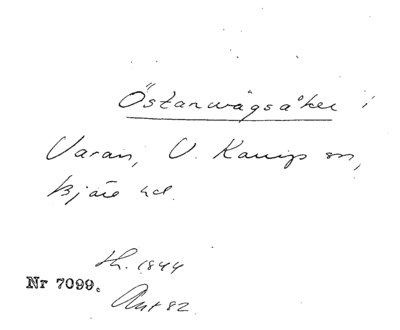 Östanvägsåker i
Varan, V. Karup sn,
Bjäre hd.
Sk. 1844
Nr 7099.
Avt 82